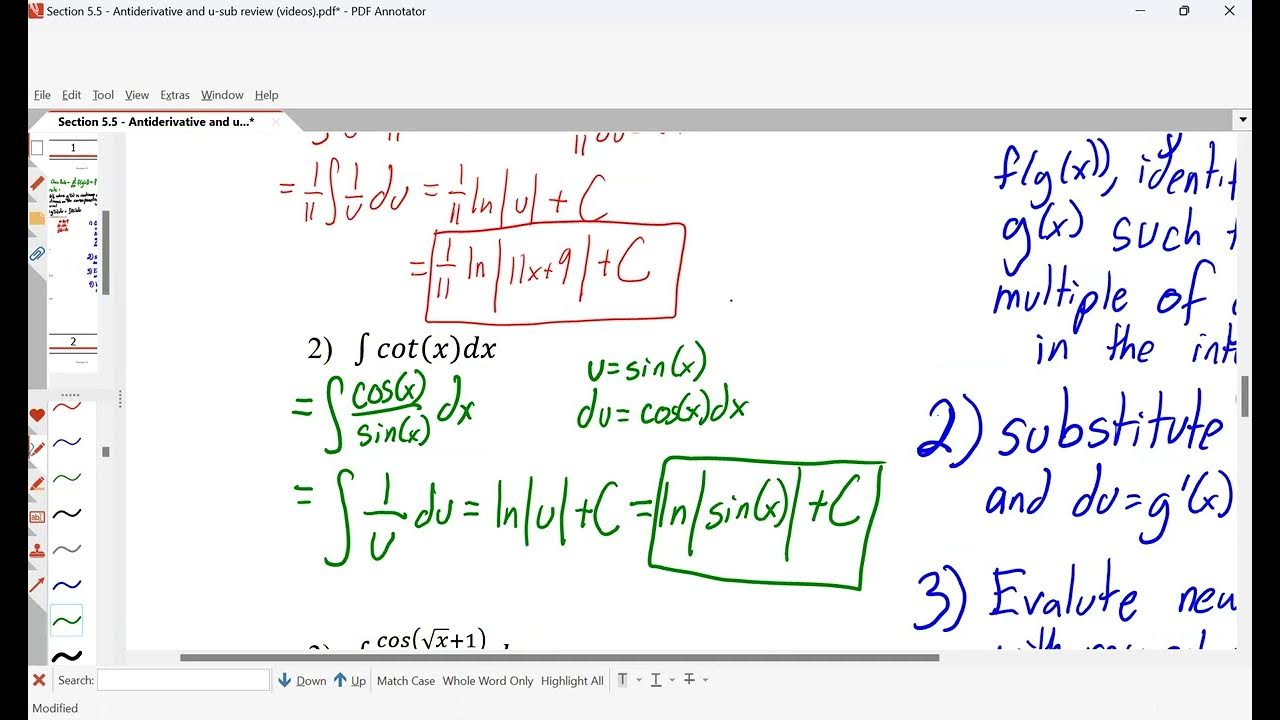 Section 5.5 - Antiderivative and u-sub review (videos).pdf* - PDF Annotator
File Edit Tool View Extras Window Help
Section 5.5 - Antiderivative and u...*
1
2
= 1/11 ∫ 1/u du = 1/11 ln|u| + C
= 1/11 ln|11x+9| + C
2) ∫ cot(x)dx
= ∫ cos(x)/sin(x) dx
u = sin(x)
du = cos(x)dx
= ∫ 1/u du = ln|u| + C = ln|sin(x)| + C
cos(√x+1)
f(g(x)), identif
g(x) such
multiple of
in the int
2) substitute
and du = g'(x)
3) Evalute new
Search: Down Up Match Case Whole Word Only Highlight All
Modified